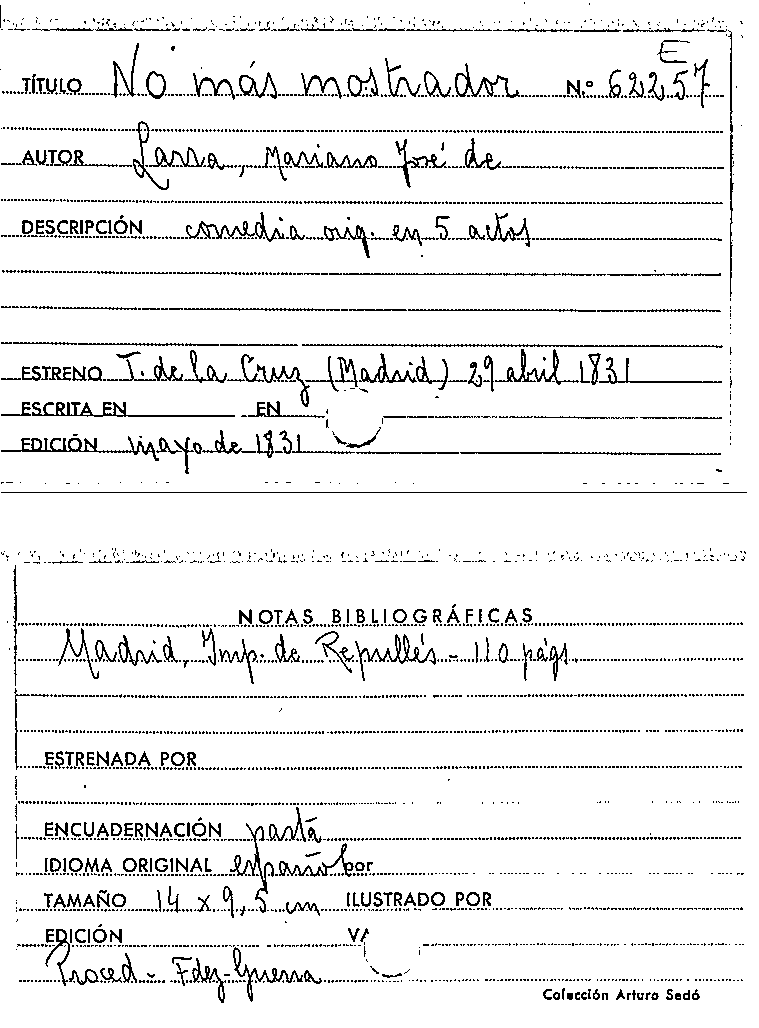 E
TÍTULO No más mostrador N.º 62257
AUTOR Larra, Mariano José de
DESCRIPCIÓN comedia orig. en 5 actos
ESTRENO T. de la Cruz (Madrid) 29 abril 1831
ESCRITA EN EN
EDICIÓN mayo de 1831
NOTAS BIBLIOGRÁFICAS
Madrid, Imp. de Repullés - 110 págs.
ESTRENADA POR
ENCUADERNACIÓN pasta
IDIOMA ORIGINAL español por
TAMAÑO 14 x 9,5 cm ILUSTRADO POR
EDICIÓN
Proced - Fdez-Guerra
Colección Arturo Sedó